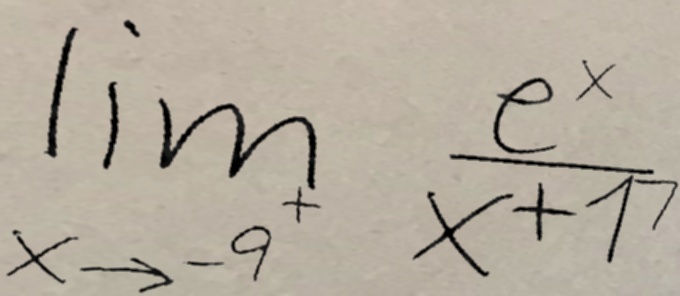 \lim_{x \to -9^+} \frac{e^x}{x+17}